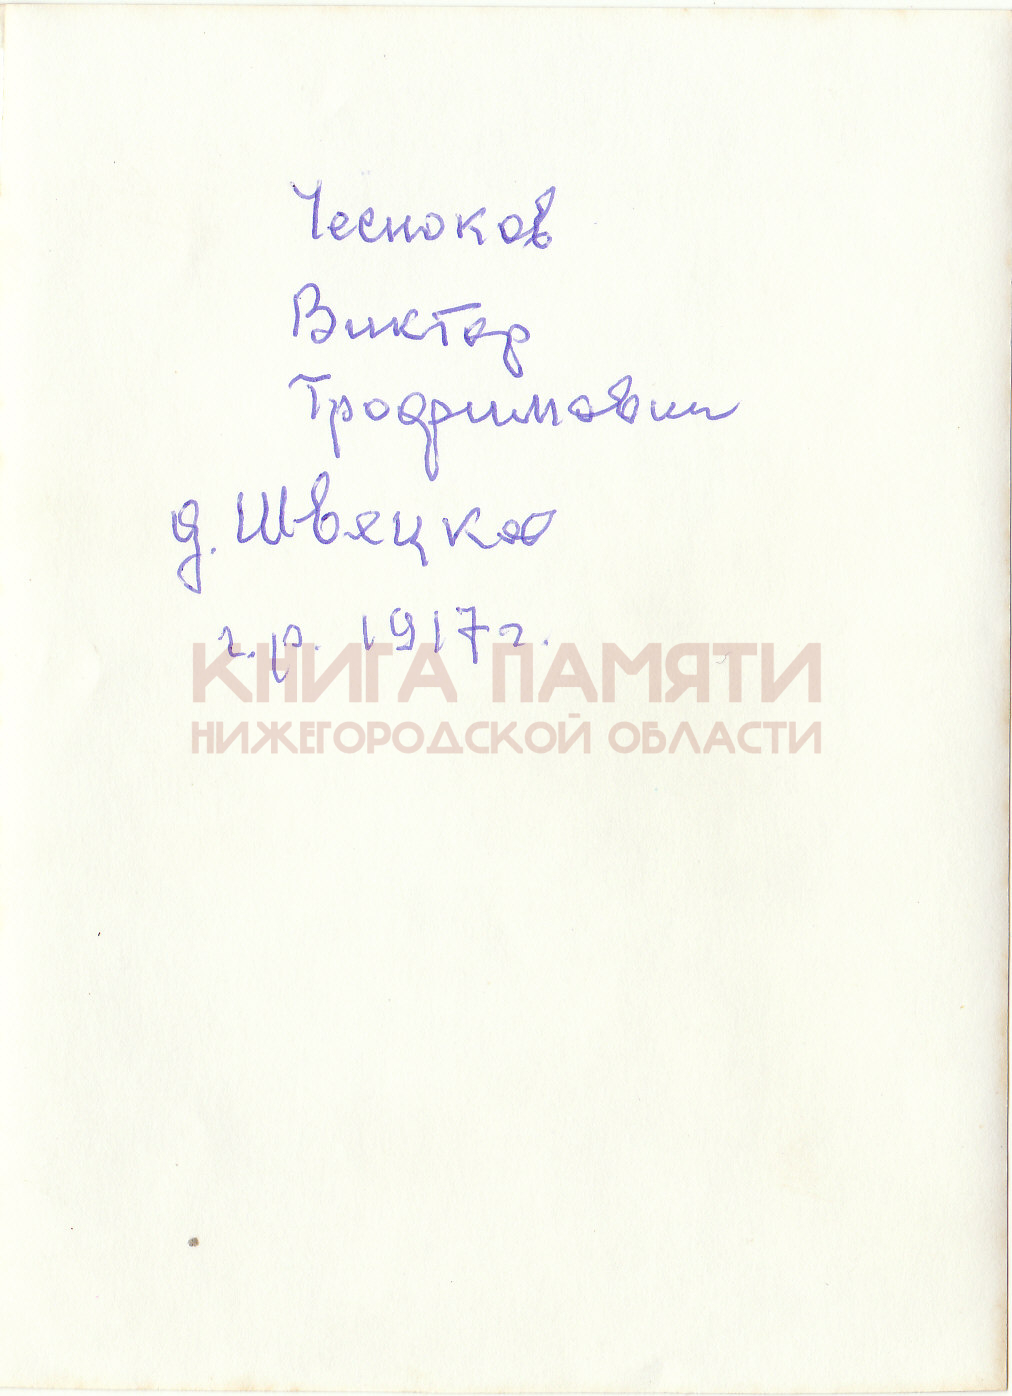 Чесноков
Виктор
Трофимович
д. Швецково
г.р. 1917г.
КНИГА ПАМЯТИ
НИЖЕГОРОДСКОЙ ОБЛАСТИ